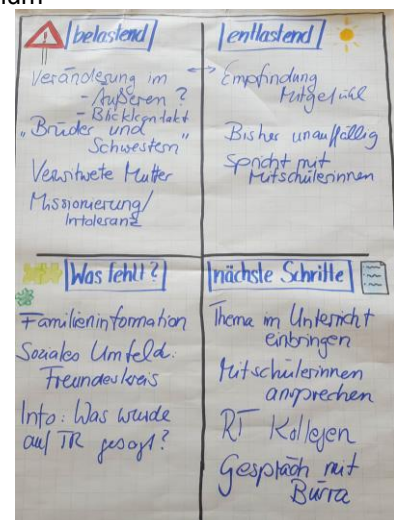 belastend
Veränderung im
- Äußeren ?
- Blickkontakt
"Brüder und
Schwestern"
Verwitwete Mutter
Missionierung/
Intoleranz
entlastend
Empfindung
Mitgefühl
Bisher unauffällig
Spricht mit
Mitschülerinnen
Was fehlt?
Familieninformation
Soziales Umfeld:
Freundeskreis
Info: Was wurde
auf TR gesagt?
nächste Schritte
Thema im Unterricht
einbringen
Mitschülerinnen
ansprechen
RT Kollegen
Gespräch mit
Büsra